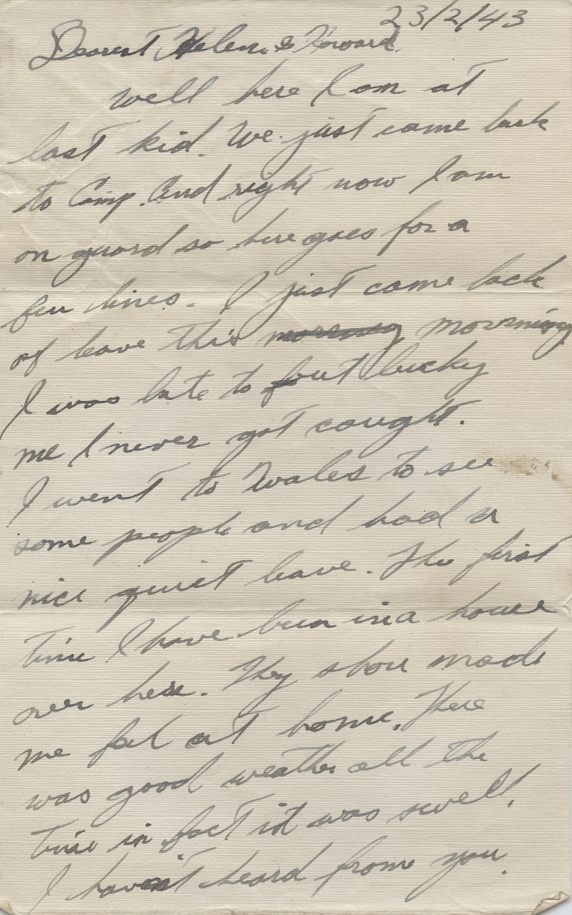 23/2/43
Dearest Helen & Howard.
Well here I am at
last kid. We just came back
to Camp. And right now I am
on guard so here goes for a
few lines. I just came back
of leave this morning morning
I was late to but lucky
me I never got caught.
I went to Wales to see
some people and had a
nice quiet leave. The first
time I have been in a house
over here. They shou made
me feel at home. There
was good weather all the
time in fact it was swell.
I haven't heard from you